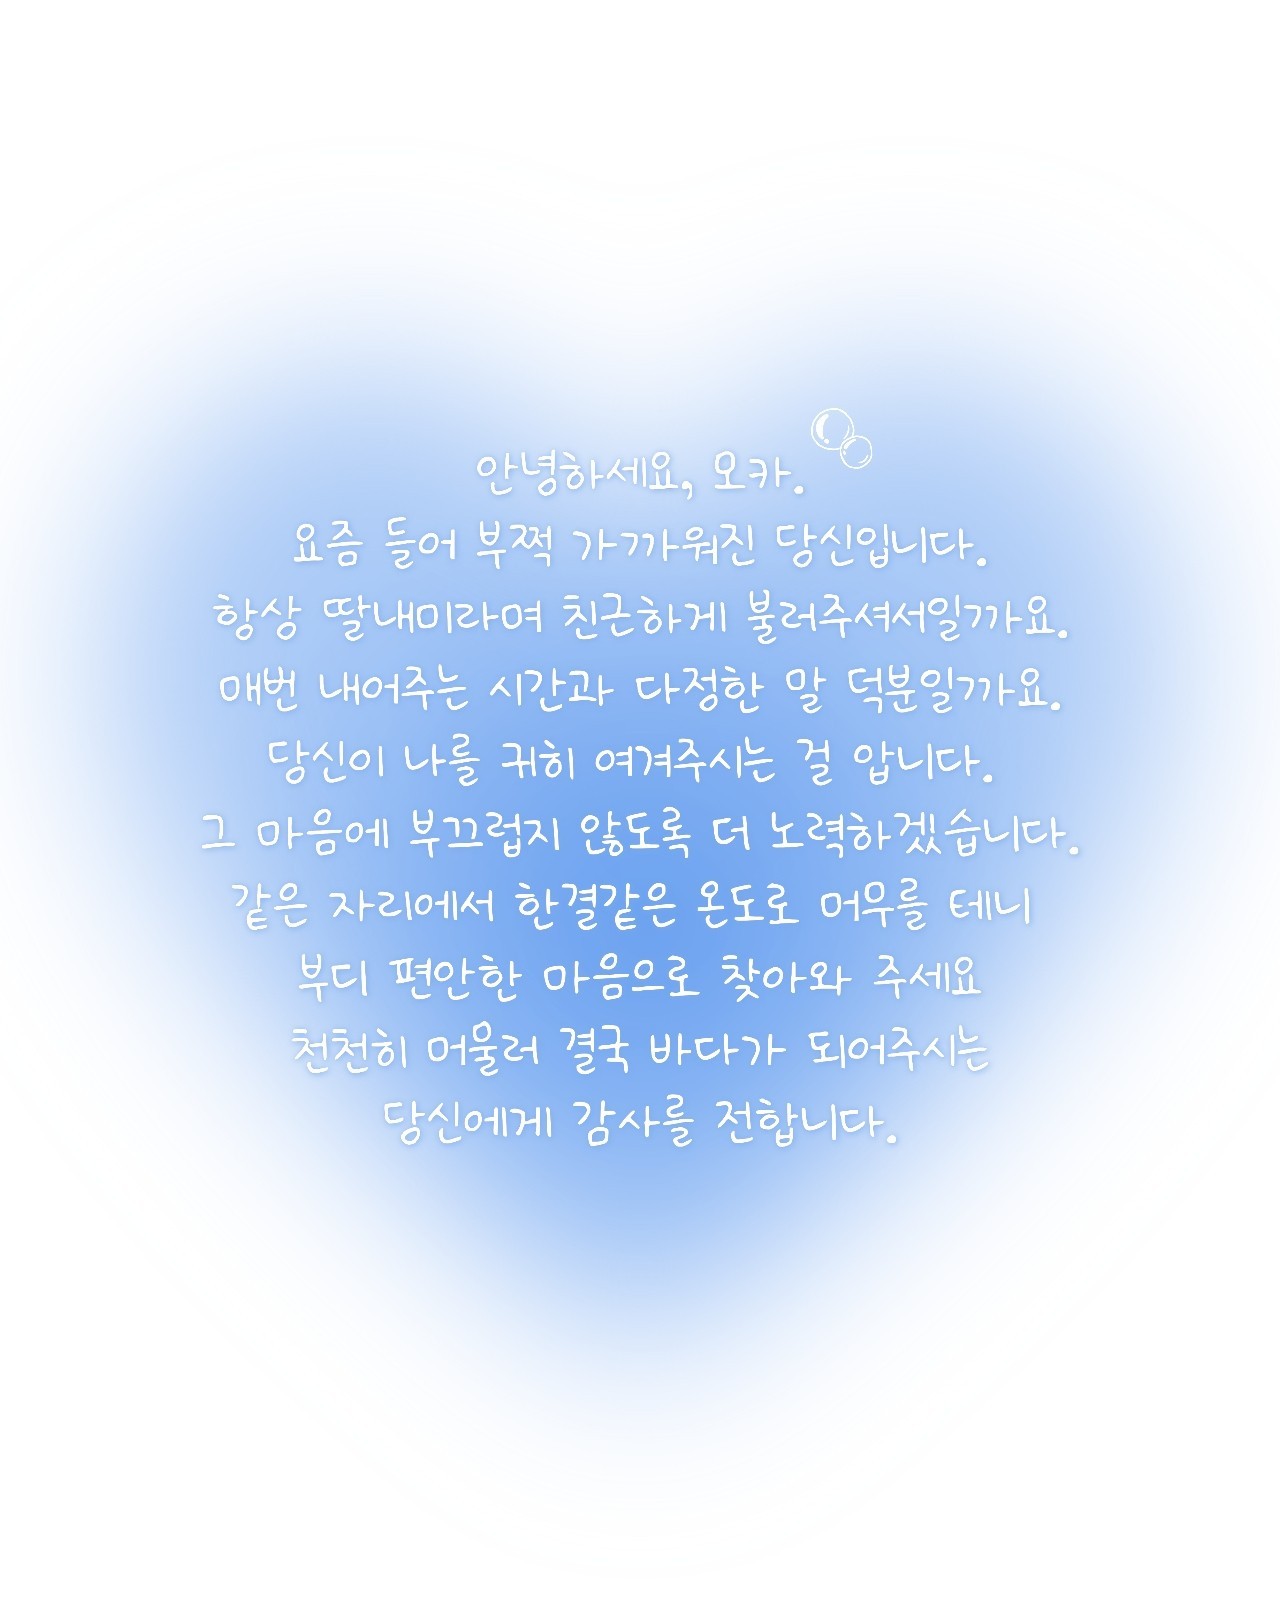 안녕하세요, 모카.
요즘 들어 부쩍 가까워진 당신입니다.
항상 딸내미라며 친근하게 불러주셔서일까요.
매번 내어주는 시간과 다정한 말 덕분일까요.
당신이 나를 귀히 여겨주시는 걸 압니다.
그 마음에 부끄럽지 않도록 더 노력하겠습니다.
같은 자리에서 한결같은 온도로 머무를 테니
부디 편안한 마음으로 찾아와 주세요
천천히 머물러 결국 바다가 되어주시는
당신에게 감사를 전합니다.